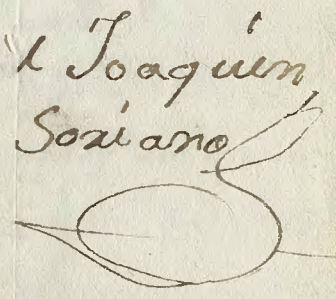 Joaquin
Soriano